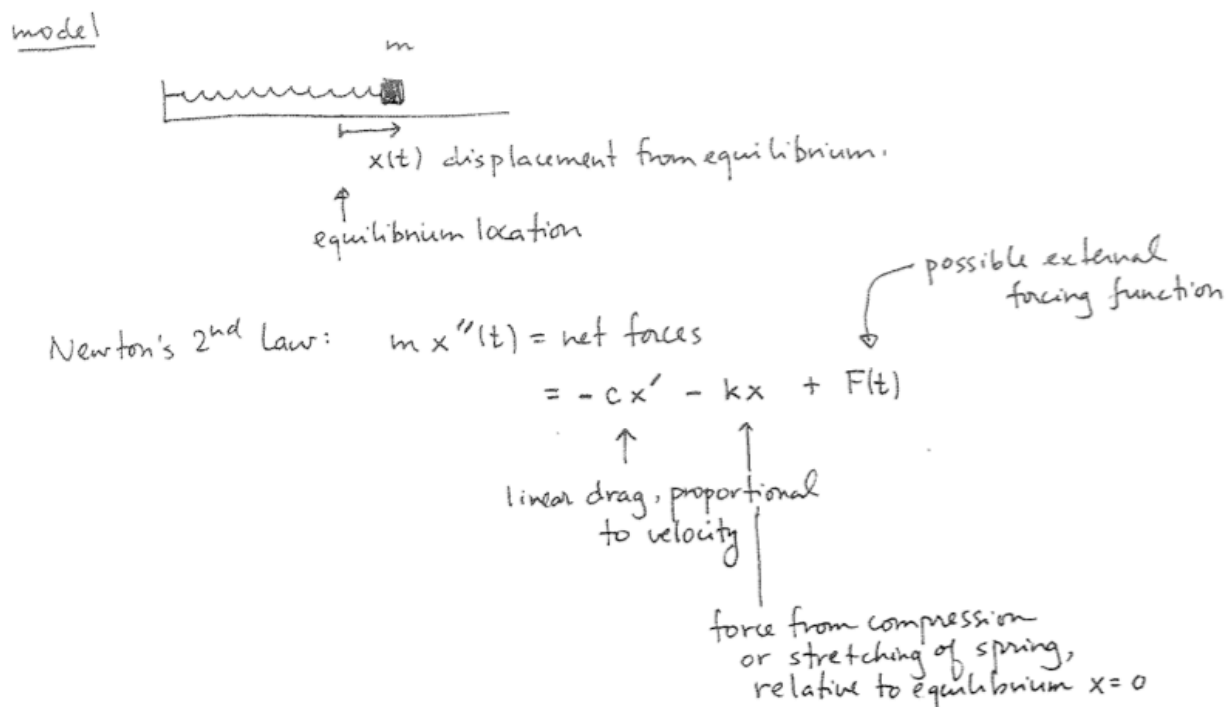 model
m
x(t) displacement from equilibrium.
equilibrium location
possible external
forcing function
Newton's 2nd Law: m x''(t) = net forces
= - c x' - k x + F(t)
linear drag, proportional
to velocity
force from compression
or stretching of spring,
relative to equilibrium x = 0